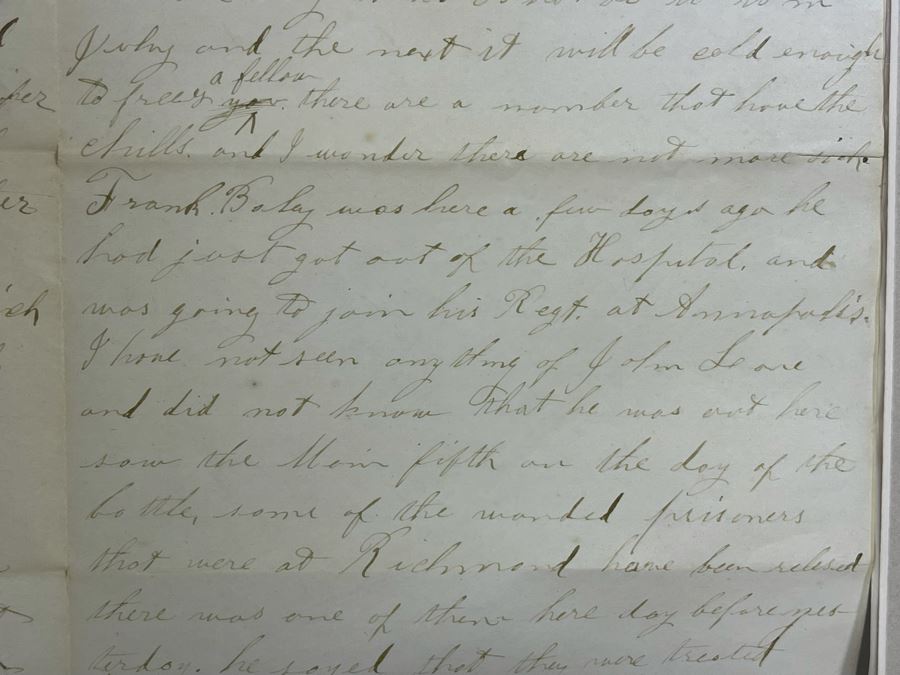 July and the next it will be cold enough
a fellow
to freeze you. there are a number that have the
chills. and I wonder there are not more sick.
Frank Baley was here a few days ago he
had just got out of the Hospital. and
was going to join his Regt. at Annapolis.
I have not seen anything of John Leare
and did not know that he was out here
saw the Main fifth on the day of the
battle, some of the wonded prisoners
that were at Richmond have been relesed
there was one of them here day before yes-
terday. he sayed that they were treated